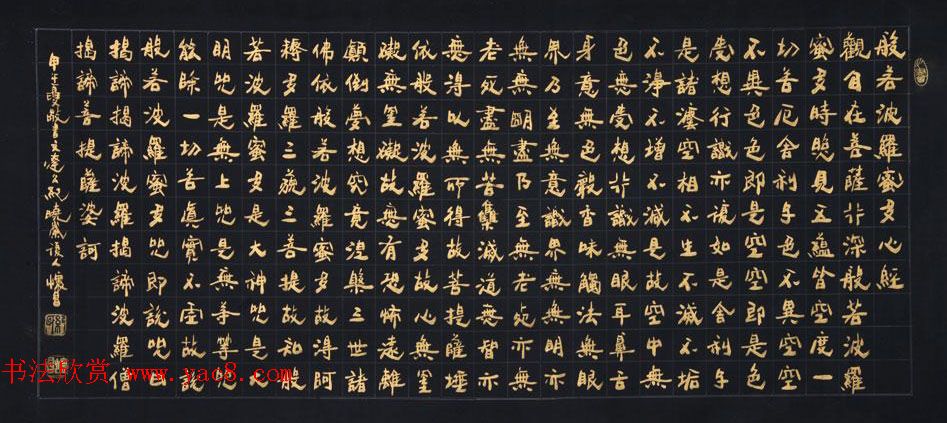 般若波羅蜜多心經
觀自在菩薩行深般若波羅
蜜多時照見五蘊皆空度一
切苦厄舍利子色不異空空
不異色色即是空空即是色
受想行識亦復如是舍利子
是諸灋空相不生不滅不垢
不淨不增不減是故空中無
色無受想行識無眼耳鼻舌
身意無色聲香味觸法無眼
界乃至無意識界無無明亦
無無明盡乃至無老死亦無
老死盡無苦集滅道無智亦
無得以無所得故菩提薩埵
依般若波羅蜜多故心無罣
礙無罣礙故無有恐怖遠離
顛倒夢想究竟涅槃三世諸
佛依般若波羅蜜多故得阿
耨多羅三藐三菩提故知般
若波羅蜜多是大神咒是大
明咒是無上咒是無等等咒
能除一切苦真實不虛故說
般若波羅蜜多咒即說咒曰
揭諦揭諦波羅揭諦波羅僧
揭諦菩提薩婆訶
敬書
书法欣赏 www.yac8.com